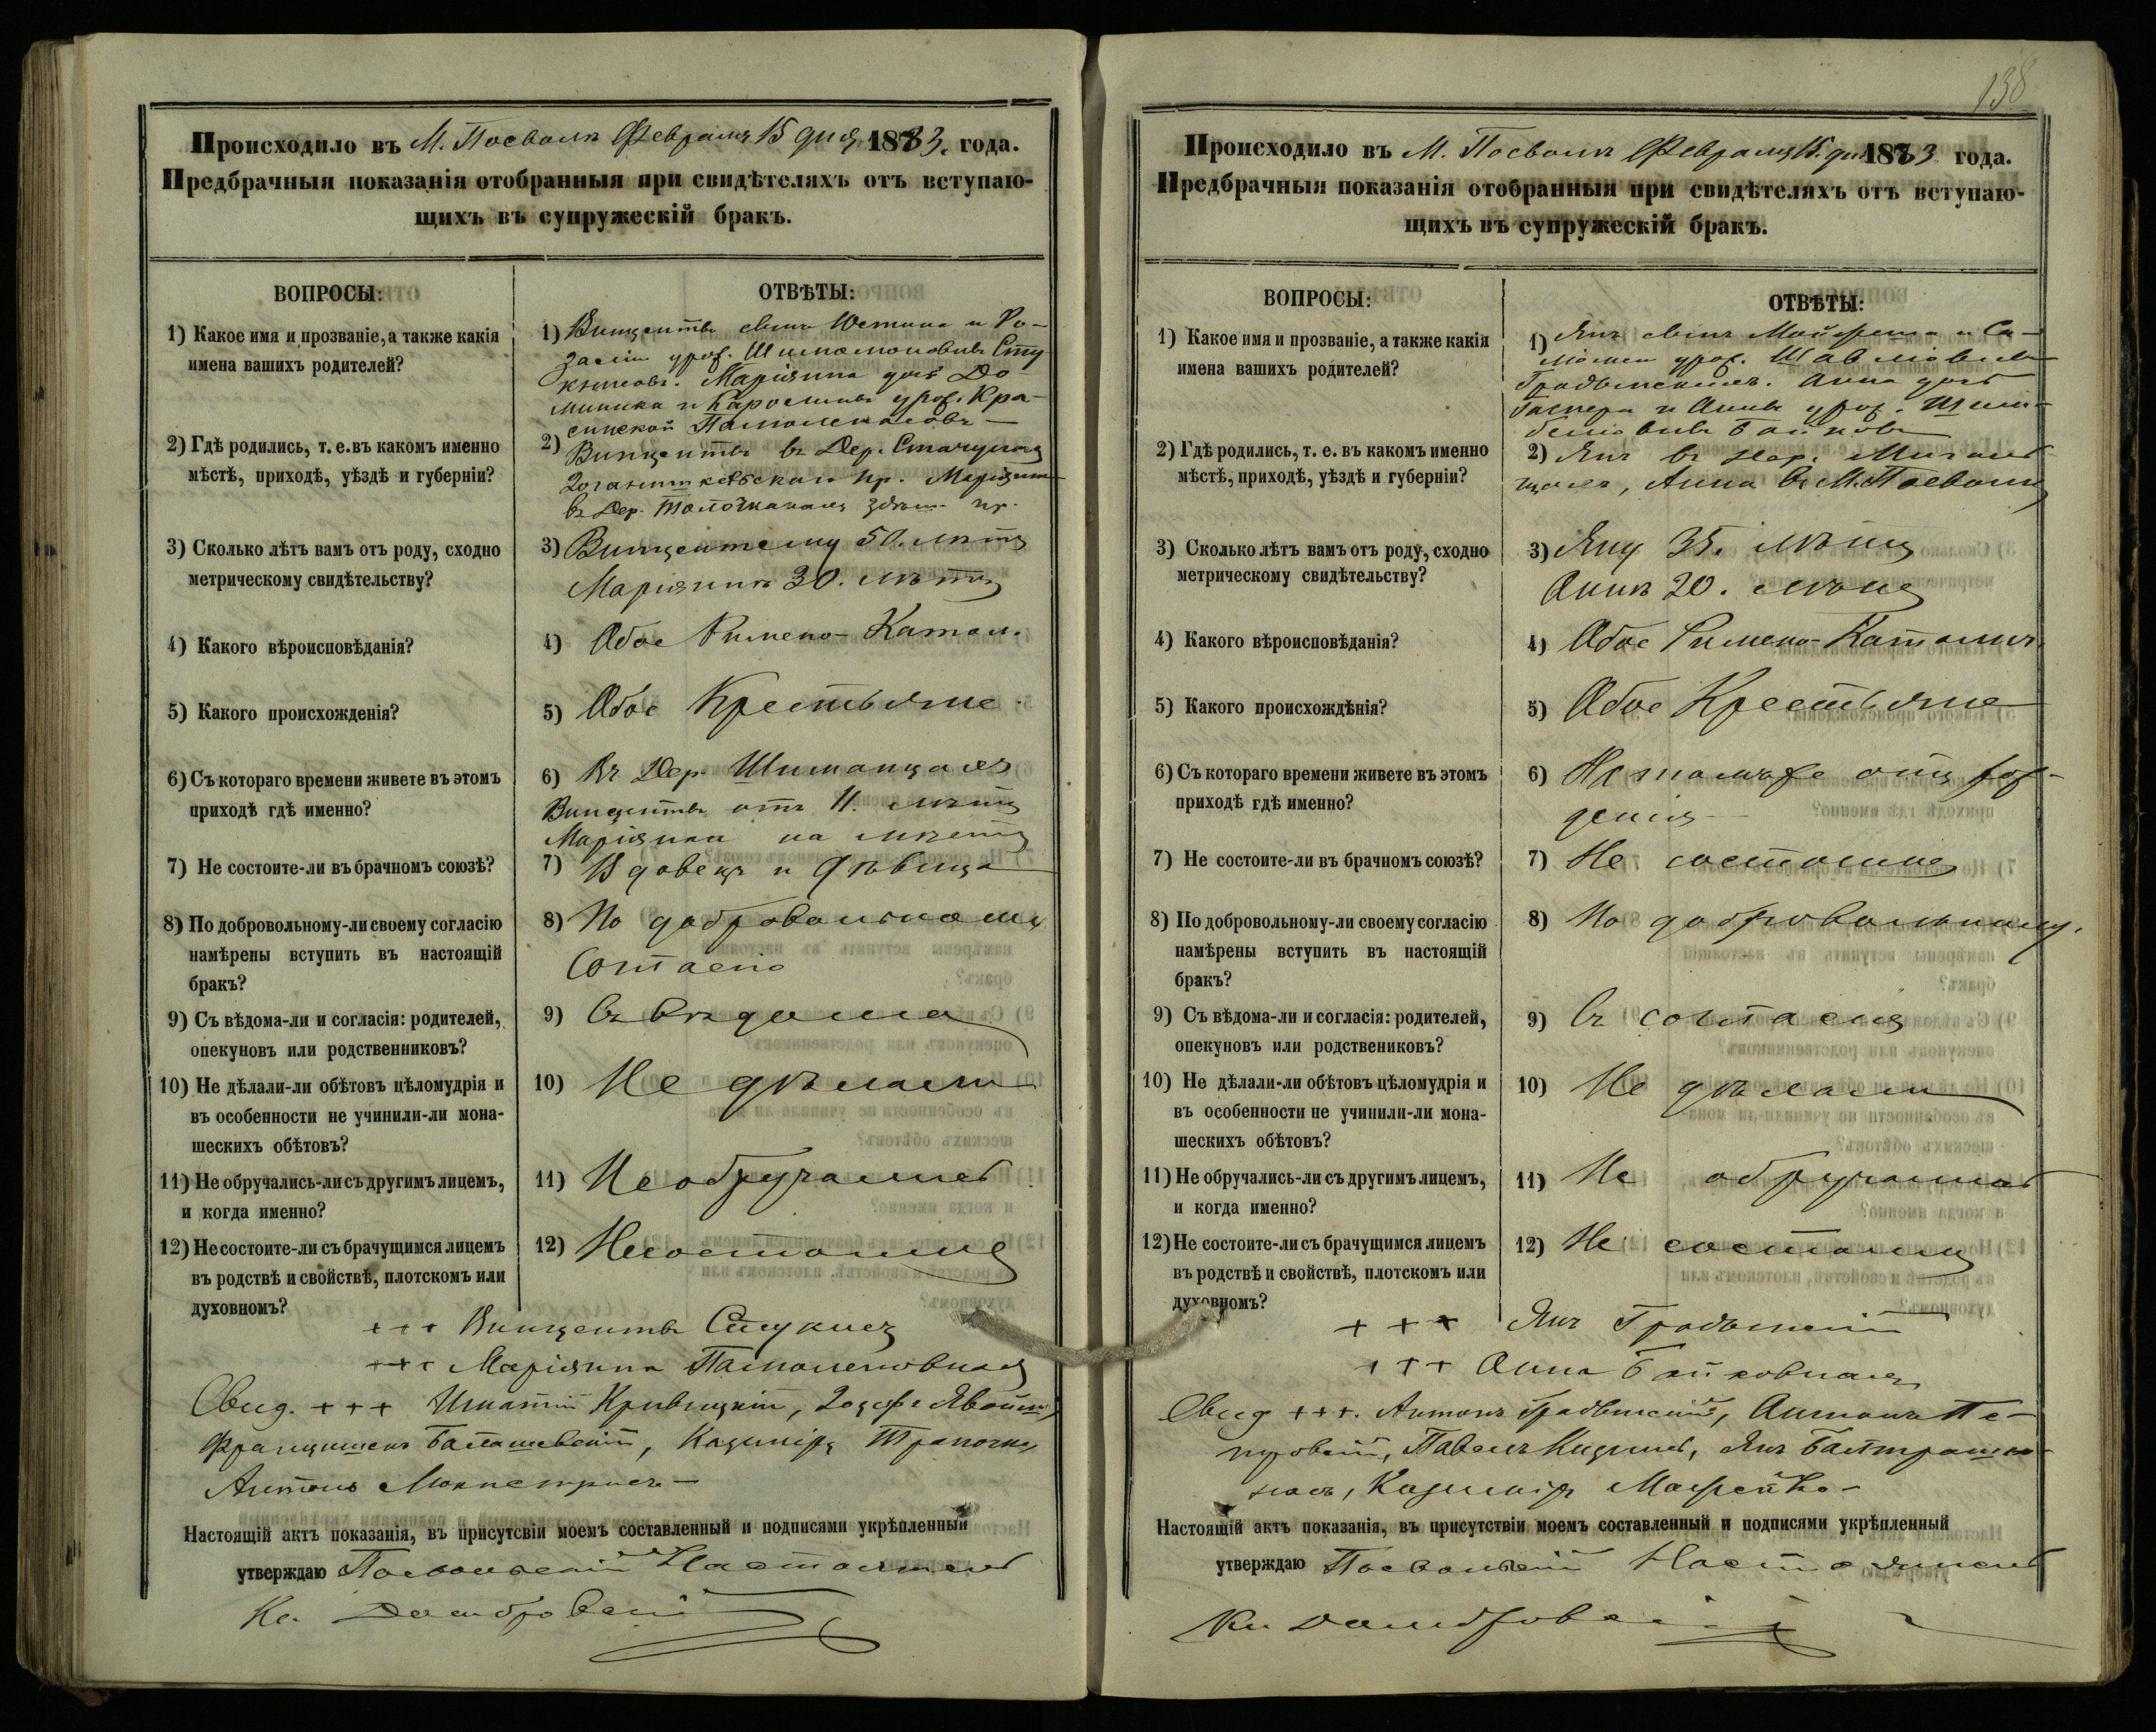 Происходило въ М. Посволѣ Февраля 15 дня 1883. года.
Предбрачныя показанія отобранныя при свидѣтеляхъ отъ вступаю-
щихъ въ супружескій бракъ.
ВОПРОСЫ:
ОТВѢТЫ:
1) Какое имя и прозваніе, а также какія
имена вашихъ родителей?
1) Винцентъ сынъ Юстина и Ро-
заліи урож.
Маріянна дочь До
миника и Каролины урож. Кра-
2) Гдѣ родились, т. е. въ какомъ именно
мѣстѣ, приходѣ, уѣздѣ и губерніи?
2) Винцентъ въ Дер.
пр. Маріянна
въ Дер. здѣш. пр.
3) Сколько лѣтъ вамъ отъ роду, сходно
метрическому свидѣтельству?
3) Винцентему 50. лѣтъ
Маріяннѣ 30. лѣтъ
4) Какого вѣроисповѣданія?
4) Обое Римско-Катол.
5) Какого происхожденія?
5) Обое Крестьяне
6) Съ котораго времени живете въ этомъ
приходѣ гдѣ именно?
6) Въ Дер. Шиманцахъ
Винцентъ отъ 11. лѣтъ
Маріянна на мѣстѣ
7) Не состоите-ли въ брачномъ союзѣ?
7) Вдовецъ и Дѣвица
8) По добровольному-ли своему согласію
намѣрены вступить въ настоящій
бракъ?
8) По добровольному
согласію
9) Съ вѣдома-ли и согласія: родителей,
опекуновъ или родственниковъ?
9) Съ вѣдома
10) Не дѣлали-ли обѣтовъ цѣломудрія и
въ особенности не учинили-ли мона-
шескихъ обѣтовъ?
10) Не дѣлали
11) Не обручались-ли съ другимъ лицемъ,
и когда именно?
11) Не обручались
12) Не состоите-ли съ брачущимся лицемъ
въ родствѣ и свойствѣ, плотскомъ или
духовномъ?
12) Не состоимъ
+++ Винцентъ Стукисъ
+++ Маріянна
Свид. +++ Игнатій Кривицкій,
Францишекъ Балашевскій, Казиміръ
Антонъ
Настоящій актъ показанія, въ присутсвіи моемъ составленный и подписями укрѣпленный
утверждаю Посвольскій Настоятель
Кс. Домбровскій
138
Происходило въ М. Посволѣ Февраля 15. дня 1883 года.
Предбрачныя показанія отобранныя при свидѣтеляхъ отъ вступаю-
щихъ въ супружескій бракъ.
ВОПРОСЫ:
ОТВѢТЫ:
1) Какое имя и прозваніе, а также какія
имена вашихъ родителей?
1) Янъ сынъ и Са-
ломеи урож.
Анна дочь
Гаспера и Анны урож.
2) Гдѣ родились, т. е. въ какомъ именно
мѣстѣ, приходѣ, уѣздѣ и губерніи?
2) Янъ въ Дер.
Анна въ М. Посволѣ
3) Сколько лѣтъ вамъ отъ роду, сходно
метрическому свидѣтельству?
3) Яну 35. лѣтъ
Аннѣ 20. лѣтъ
4) Какого вѣроисповѣданія?
4) Обое Римско-Католич.
5) Какого происхождѣнія?
5) Обое Крестьяне
6) Съ котораго времени живете въ этомъ
приходѣ гдѣ именно?
6) На томъ же отъ рож-
денія
7) Не состоите-ли въ брачномъ союзѣ?
7) Не состоимъ
8) По добровольному-ли своему согласію
намѣрены вступить въ настоящій
бракъ?
8) По добровольному.
9) Съ вѣдома-ли и согласія: родителей,
опекуновъ или родствениковъ?
9) Съ согласія
10) Не дѣлали-ли обѣтовъ цѣломудрія и
въ особенности не учинили-ли мона-
шескихъ обѣтовъ?
10) Не дѣлали
11) Не обручались-ли съ другимъ лицемъ,
и когда именно?
11) Не обручались
12) Не состоите-ли съ брачущимся лицемъ
въ родствѣ и свойствѣ, плотскомъ или
духовномъ?
12) Не состоимъ
+ + + Янъ
+ + + Анна
Свид +++. Антонъ Антонъ Пе-
Павелъ Янъ
Казиміръ
Настоящій актъ показанія, въ присутствіи моемъ составленный и подписями укрѣпленный
утверждаю Посвольскій Настоятель
Кс Домбровскій